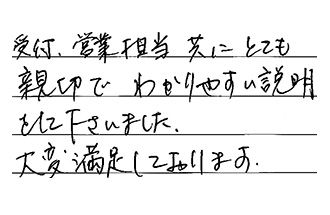 受付、営業担当 共に とても
親切で わかりやすい説明
をして下さいました.
大変満足しております.